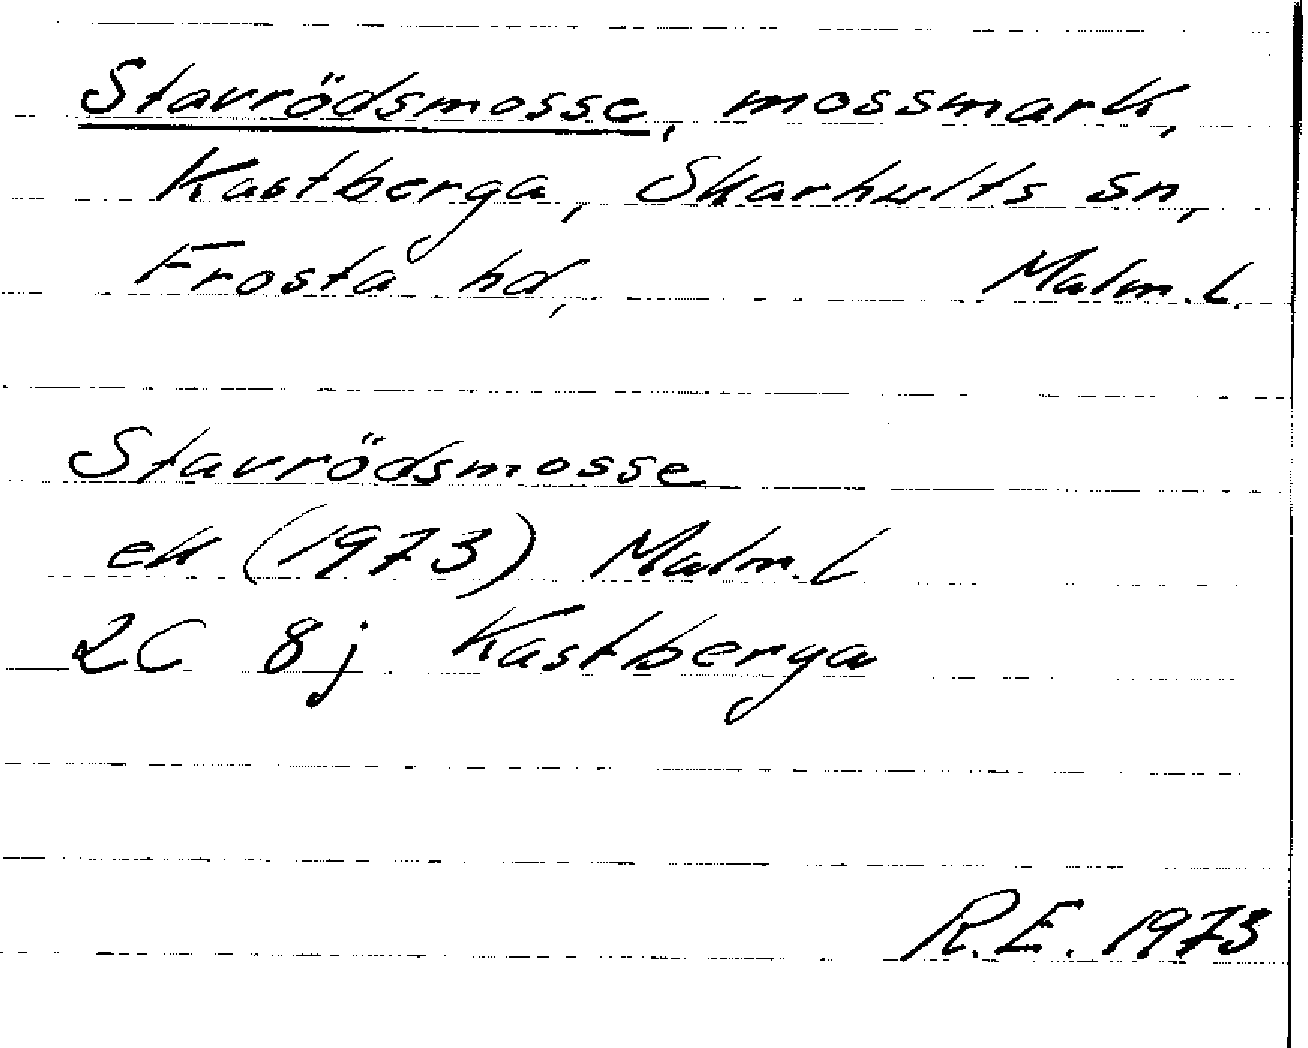 Stavrödsmosse, mossmark,
Kastberga, Skarhults sn,
Frosta hd, Malm. L.
Stavrödsmosse
ek (1973) Malm. L
2C 8j Kastberga
R.E. 1973